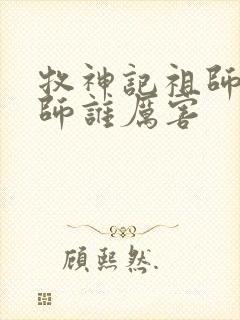 牧神記祖師
師誰厲害
顧熙然.